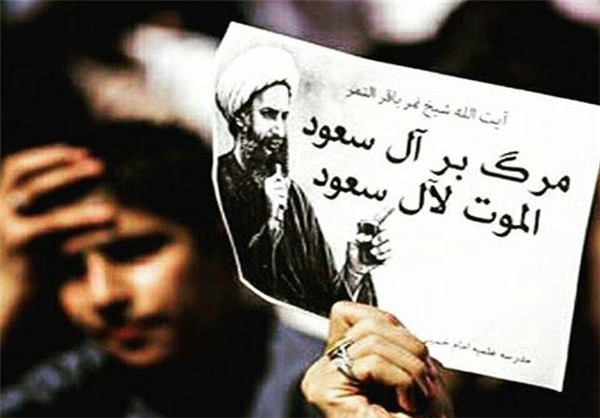 آیت الله شیخ نمر باقر النمر
مرگ بر آل سعود
الموت لآل سعود
مدرسه علمیه امام